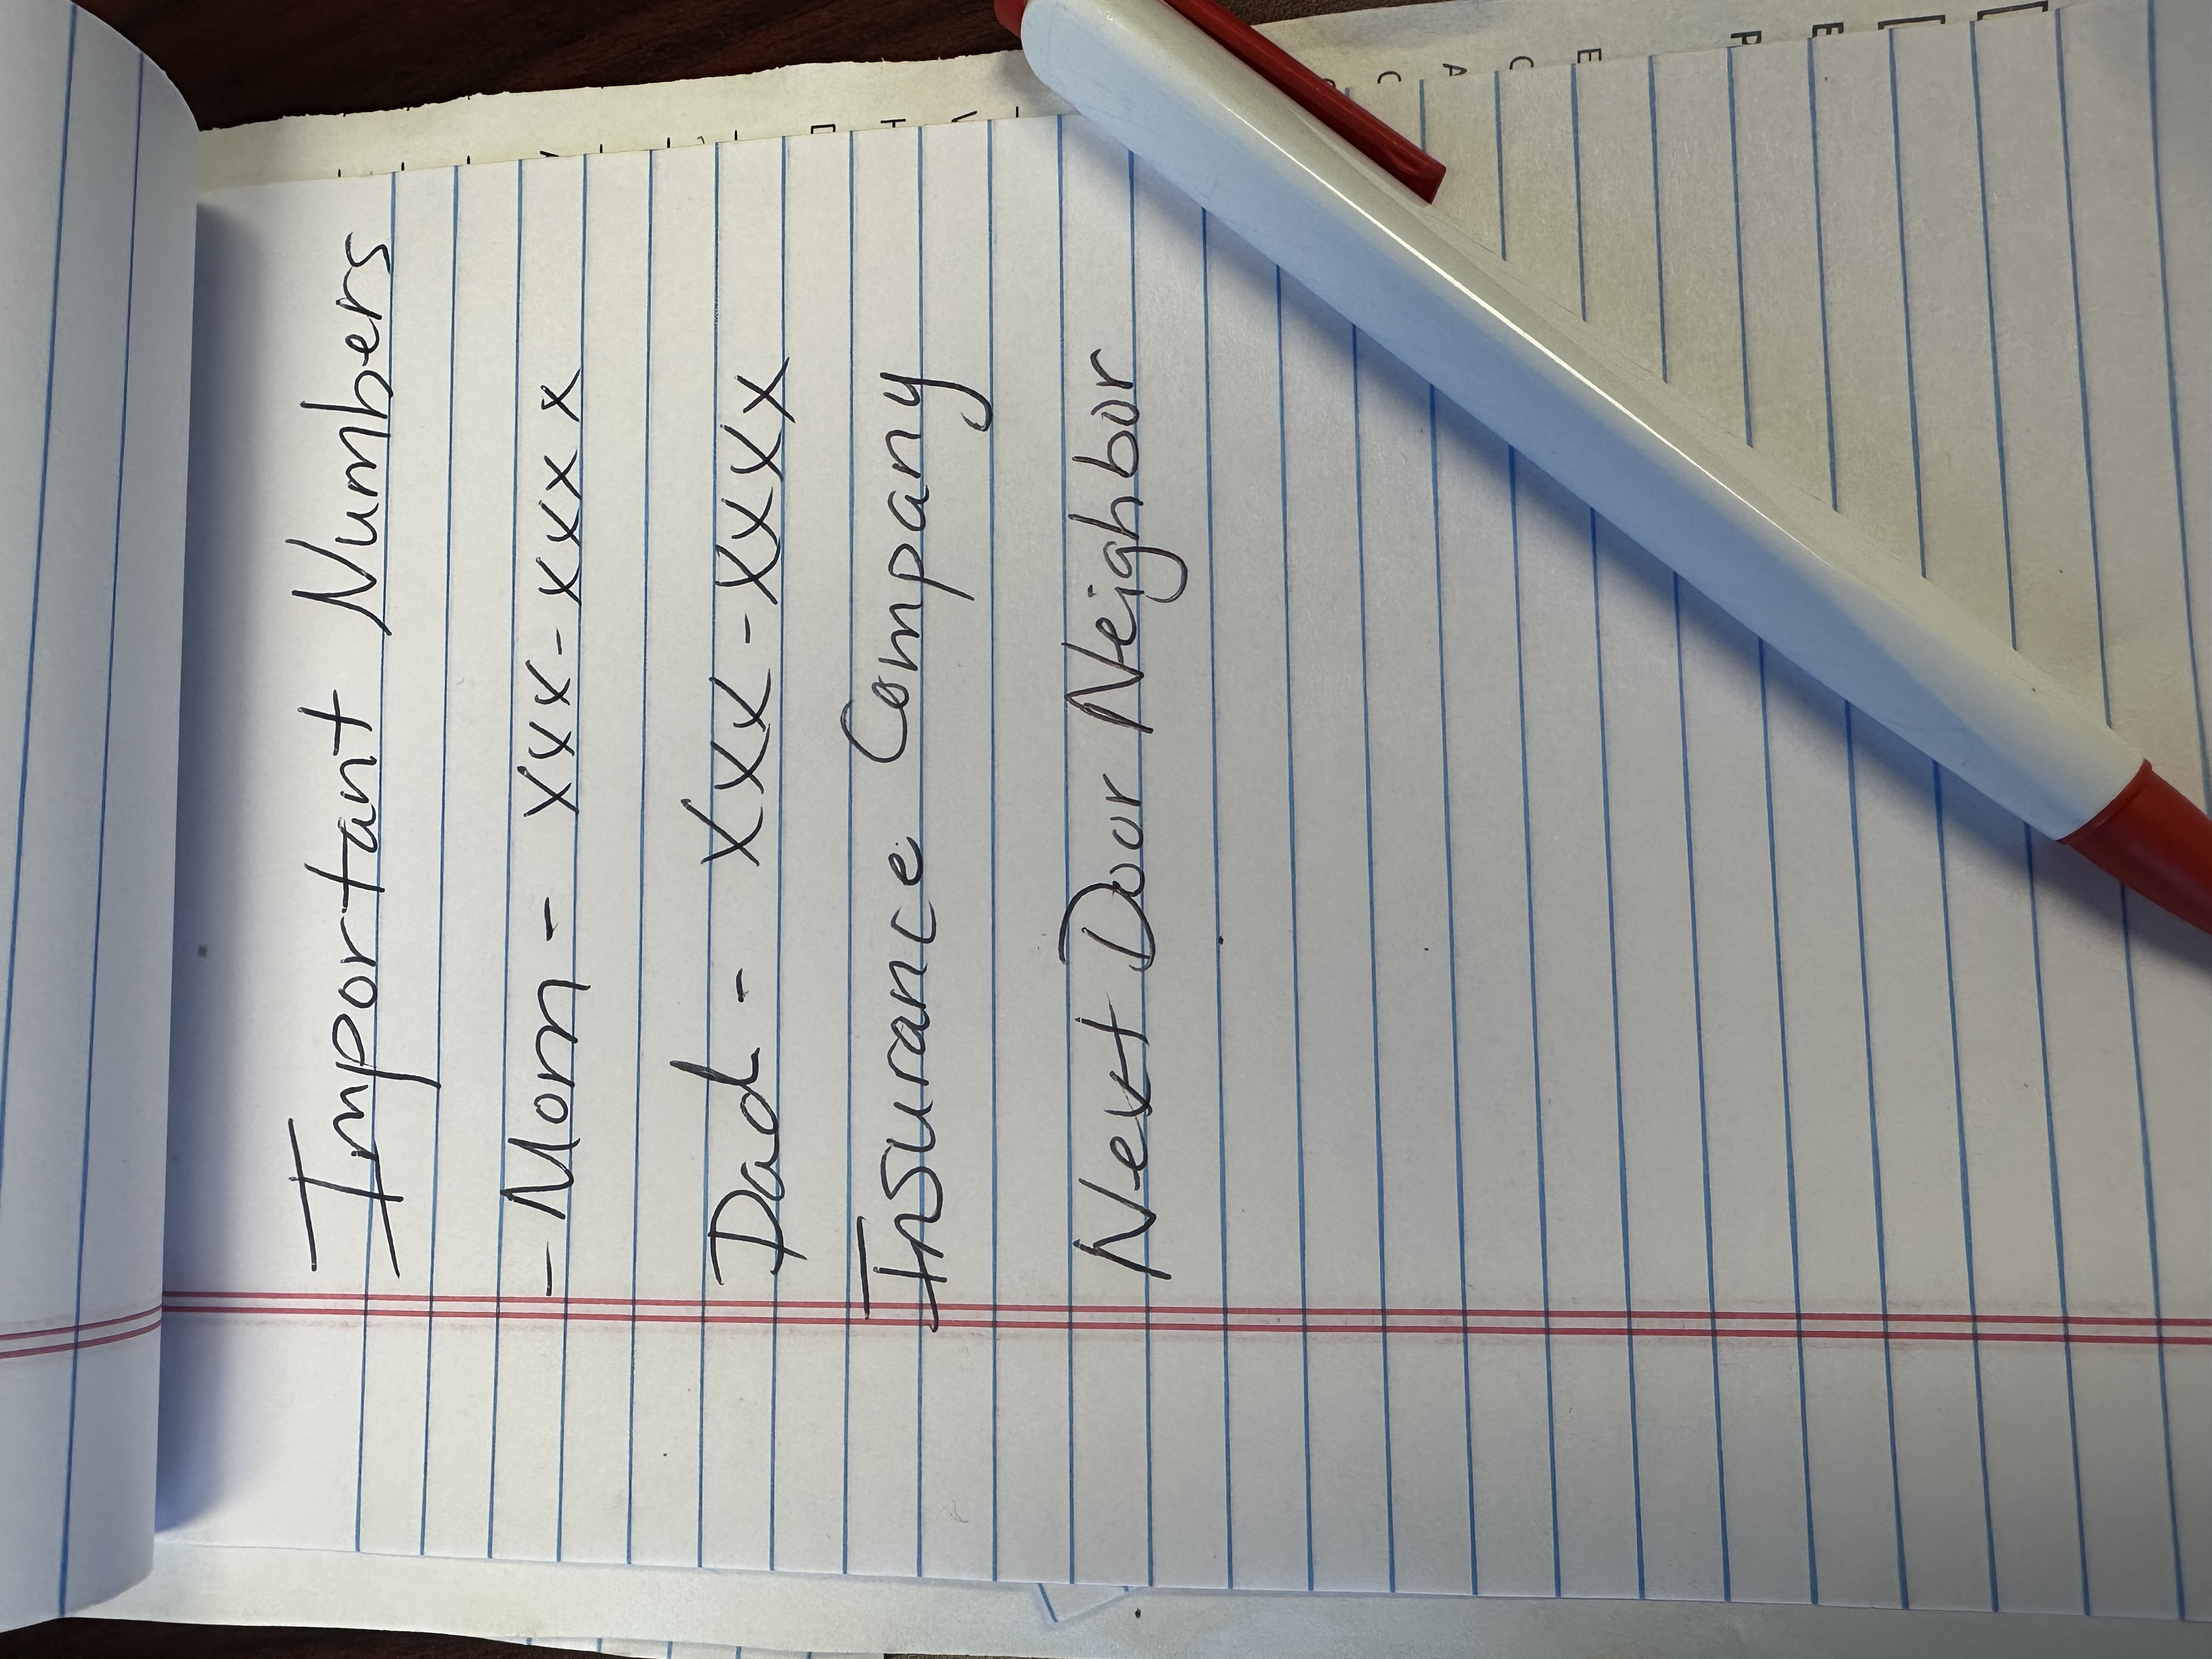 Important Numbers
- Mom - xxx-xxxx
Dad - xxx-xxxx
Insurance Company
Next Door Neighbor